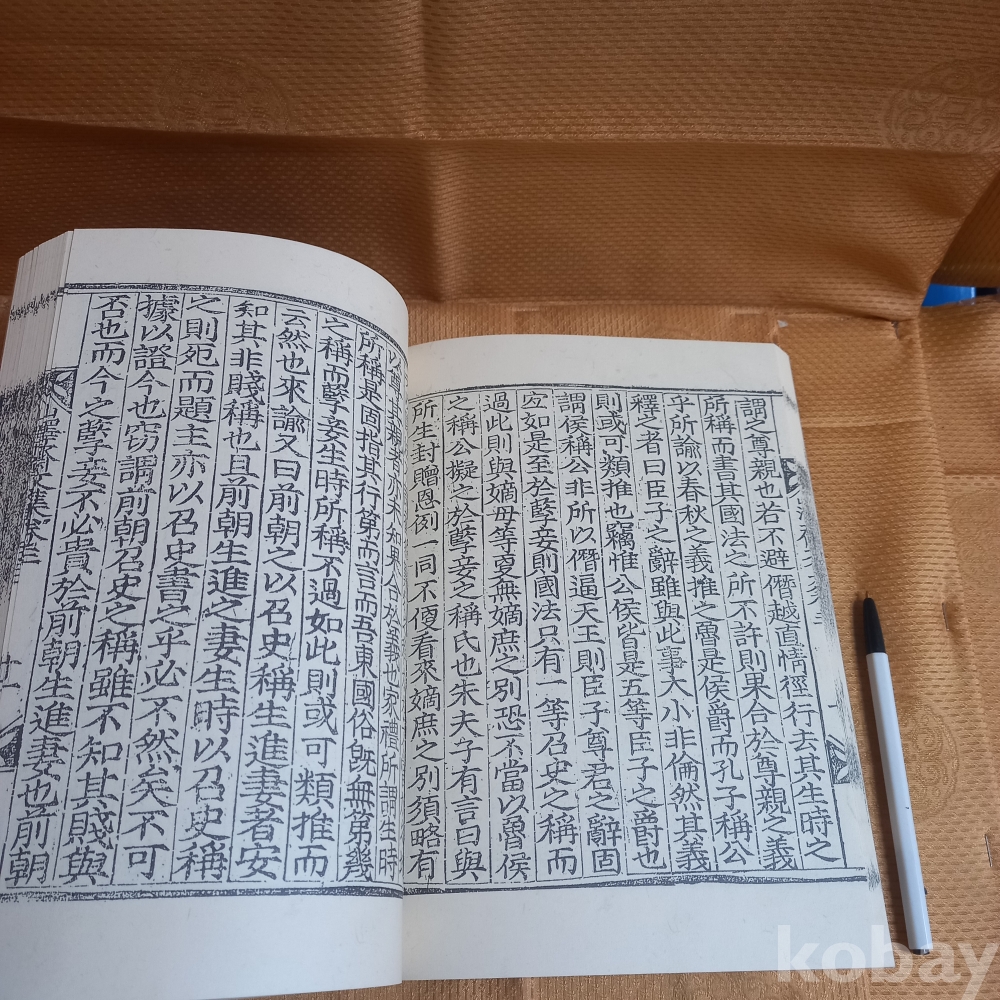 謂之尊親也若不避僭越直情徑行去其生時之
所稱而書其國法之所不許則果合於尊親之義
乎所諭以春秋之義推之魯是侯爵而孔子稱公
釋之者曰臣子之辭雖與此事大小非倫然其義
則或可類推也竊惟公侯皆是五等臣子之爵也
謂侯稱公非所以僭逼天王則臣子尊君之辭固
宜如是至於孽妾則國法只有一等召史之稱而
過此則與嫡母等更無嫡庶之別恐不當以魯侯
之稱公擬之於孽妾之稱氏也朱夫子有言曰與
所生封贈恩例一同不便看來嫡庶之別須略有
尊其親者亦未知果合於義也家禮所謂生時
所稱是固指其行第而言而吾東國俗旣無第幾
之稱而孽妾生時所稱不過如此則或可類推而
云然也來諭又曰前朝之以召史稱生進妻者安
知其非賤稱也且前朝生進之妻生時以召史稱
之則死而題主亦以召史書之乎必不然矣不可
據以證今也窃謂前朝召史之稱雖不知其賤與
否也而今之孽妾不必貴於前朝生進妻也前朝
齋文集卷之三
十一
kobay